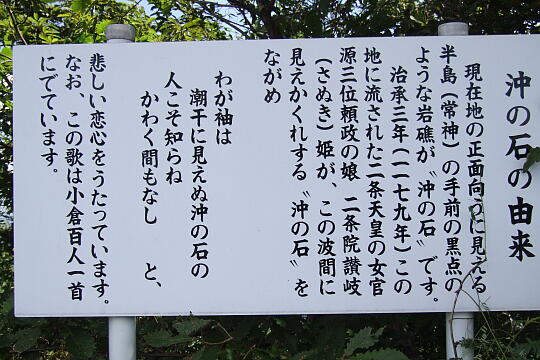 沖の石の由来
現在地の正面向うに見える
半島（常神）の手前の黒点の
ような岩礁が〝沖の石〟です。
治承三年（一一七九年）この
地に流された二条天皇の女官
源三位頼政の娘　二条院讃岐
（さぬき）姫が、この波間に
見えかくれする〝沖の石〟を
ながめ
わが袖は
潮干に見えぬ沖の石の
人こそ知らね
かわく間もなし　と、
悲しい恋心をうたっています。
なお、この歌は小倉百人一首
にでています。